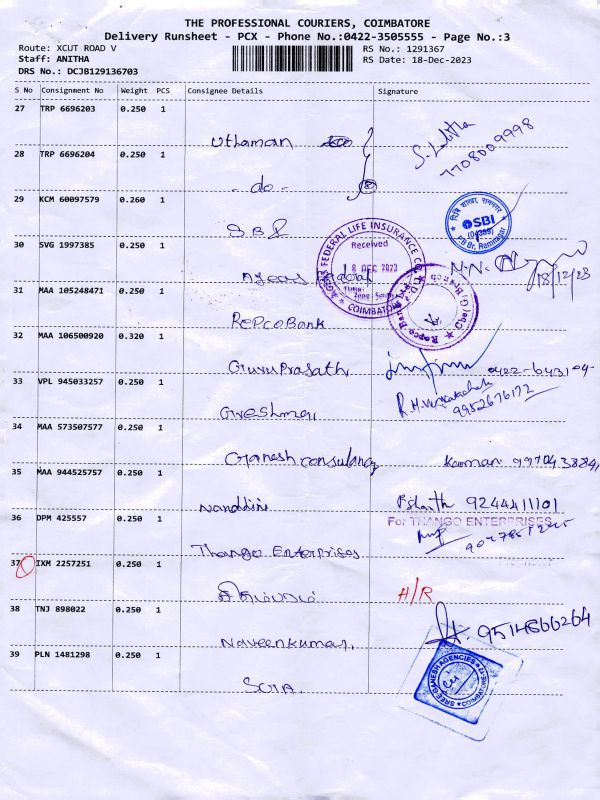 THE PROFESSIONAL COURIERS, COIMBATORE
Delivery Runsheet - PCX - Phone No.:0422-3505555 - Page No.:3
Route: XCUT ROAD V
RS No.: 1291367
Staff: ANITHA
RS Date: 18-Dec-2023
DRS No.: DCJB129136703
S No Consignment No Weight PCS Consignee Details Signature
27 TRP 6696203 0.250 1
Uthaman
S. Lalitha
7708009998
28 TRP 6696204 0.250 1
- do -
29 KCM 60097579 0.260 1
SBI
SBI
(04385)
30 SVG 1997385 0.250 1
AGEAS FEDERAL LIFE INSURANCE CO. LTD.
Received
18 DEC 2023
COIMBATORE
Ageas Federal
18/12/23
31 MAA 105248471 0.250 1
Repco Bank
32 MAA 106500920 0.320 1
Guru Prasath
0422-643104
33 VPL 945033257 0.250 1
9952676172
34 MAA 573507577 0.250 1
Ganesh consulancy
35 MAA 944525757 0.250 1
Nanddini
9244411101
36 DPM 425557 0.250 1
For THANGO ENTERPRISES
Thango Enterprises
37 IXM 2257251 0.250 1
H/R
38 TNJ 898022 0.250 1
Naveenkumar
9514666264
39 PLN 1481298 0.250 1
SREE GANESH AGENCIES
COIMBATORE